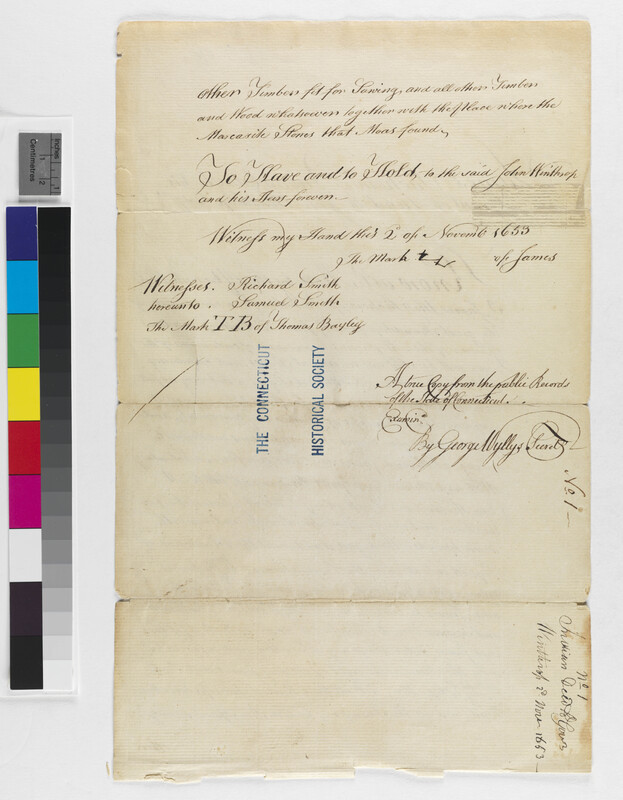 other Timber fit for Sawing, and all other Timber
and Wood whatsoever together with the Place where the
Marcasite Stones that Moas found,
To Have and to Hold, to the said John Winthrop
and his Heirs forever.
Witness my Hand this 2d of Novemb. 1653
The Mark of James
Witnesses. Richard Smith
hereunto. Samuel Smith
The Mark TB of Thomas Bayley
A true Copy from the public Records
of the State of Connecticut.
Examin.
By George Wyllys Secret
No. 1
THE CONNECTICUT
HISTORICAL SOCIETY
No 1
Indian Deed to Govr
Winthrop 2d Novr 1653
Inches
Centimetres
1
2